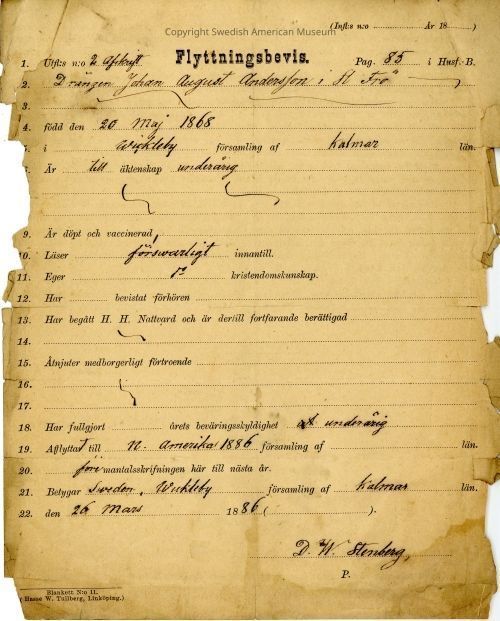 Copyright Swedish American Museum
(Infl: n:o Ar 18 )
Flyttningsbevis.
1. Utfl: n:o 2 Afskrift Pag. 85 i Husf.-B.
2. Drängen Johan August Andersson i St Frö
3.
4. född den 20 Maj 1868
i Wickleby församling af Kalmar län.
Är till äktenskap underårig
9. Är döpt och vaccinerad,
10. Läser försvarligt innantill.
11. Eger kristendomskunskap.
12. Har bevistat förhören
13. Har begått H. H. Nattvard och är dertill fortfarande berättigad
14.
15. Åtnjuter medborgerligt förtroende
16.
17.
18. Har fullgjort årets beväringsskyldighet underårig
19. Aflyttat till N. Amerika 1886 församling af län.
20. före mantalsskrifningen här till nästa år.
21. Betygar Sweden, Wickleby församling af Kalmar län.
22. den 26 Mars 1886 ( ).
D. W Stenberg
P.
Blankett N:o 11.
Hasse W. Tullberg, Linköping.)